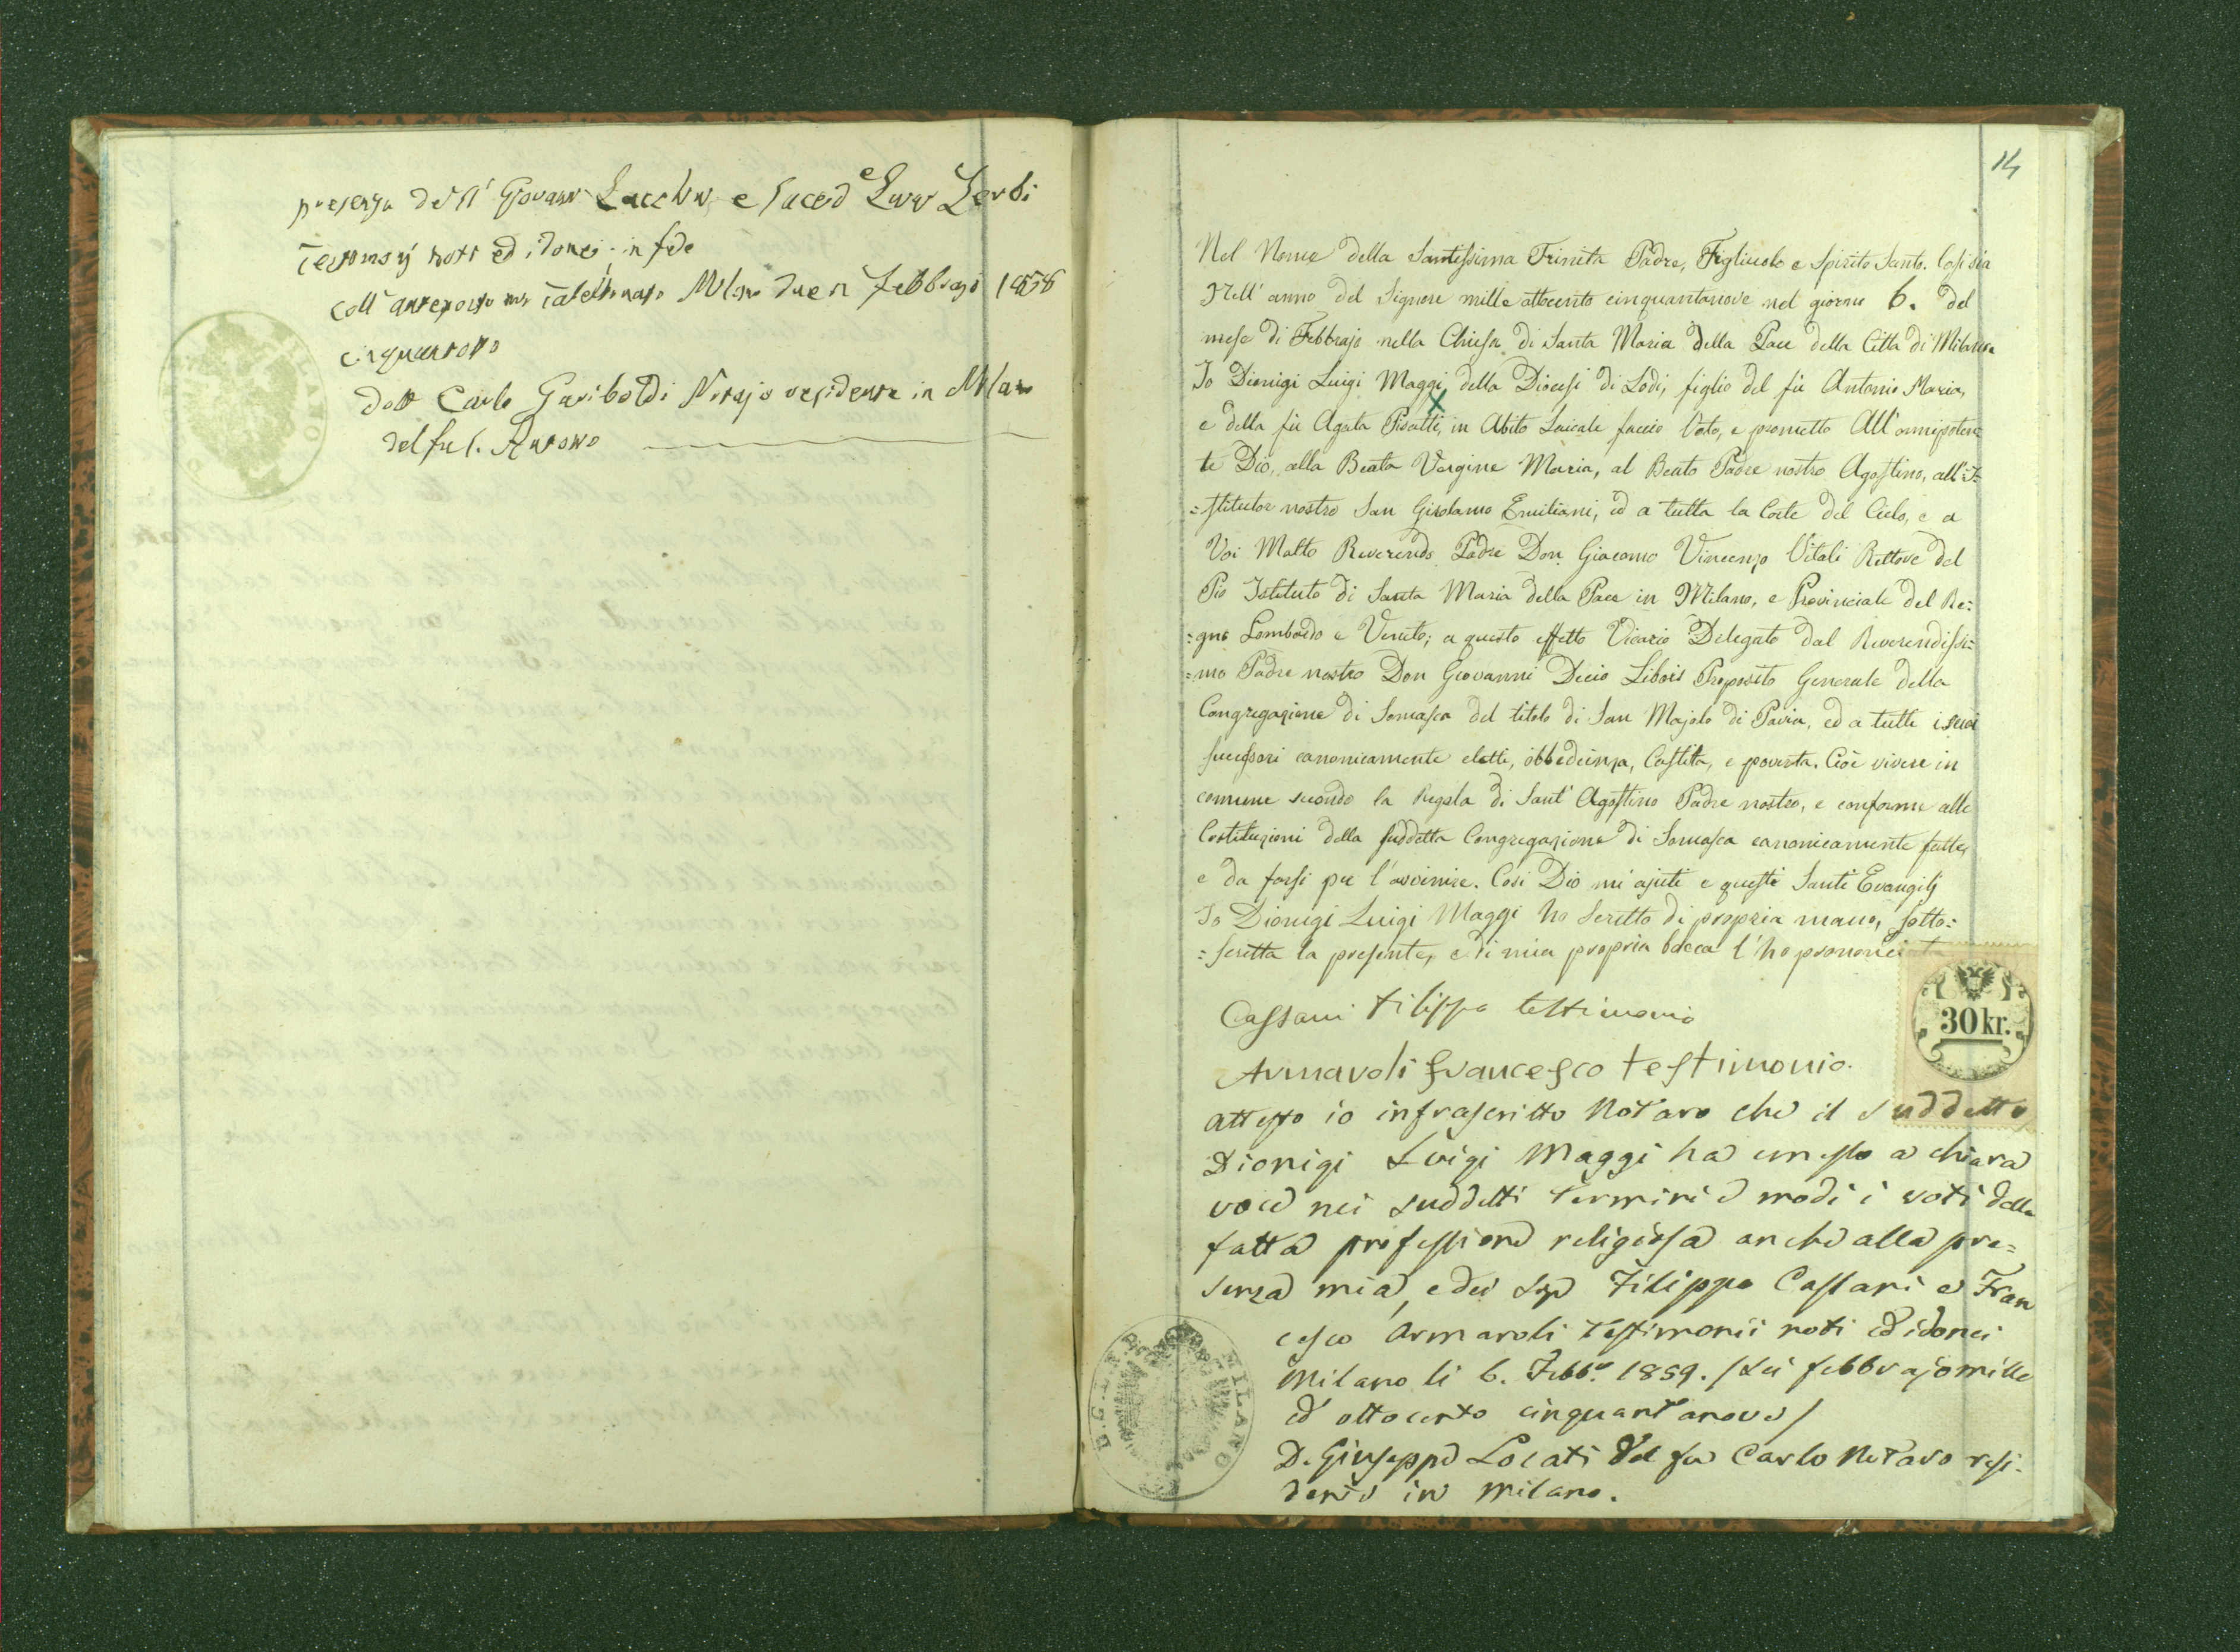 presenza dei SS.ri Giovanni Zacchi e Saced Luigi Zerbi
Testimonj noti ed idonei in fede
coll'anteposto mio Tabellionato Milano due Febbrajo 1858
cinquantotto
dott Carlo Gariboldi Notajo residente in Milano
del fu S. Antonio
14
Nel Nome della Santissima Trinita Padre, Figliuolo e Spirito Santo. Cosi sia
Nell'anno del Signore mille ottocento cinquantanove nel giorno 6. del
mese di Febbrajo nella Chiesa di Santa Maria della Pace della Città di Milano
Io Dionigi Luigi Maggi, della Diocesi di Lodi, figlio del fù Antonio Maria,
x
e della fù Agata Pisatti, in Abito Laicale faccio Voto, e prometto All'omnipoten=
te Dio, alla Beata Vergine Maria, al Beato Padre nostro Agostino, all'I=
=stitutor nostro San Girolamo Emiliani, ed a tutta la Corte del Cielo, e a
Voi Molto Reverendo Padre Don Giacomo Vincenzo Vitali Rettore del
Pio Istituto di Santa Maria della Pace in Milano, e Provinciale del Re=
=gno Lombardo e Veneto; a questo effetto Vicario Delegato dal Reverendissi=
=mo Padre nostro Don Giovanni Decio Libois Proposito Generale della
Congregazione di Somasca del titolo di San Majolo di Pavia, ed a tutti i suoi
successori canonicamente eletti, obbedienza, Castita, e poverta. Cioè vivere in
comune secondo la Regola di Sant'Agostino Padre nostro, e conforme alle
Costituzioni della suddetta Congregazione di Somasca canonicamente fatte,
e da farsi per l'avvenire. Cosi Dio mi ajuti e questi Santi Evangilj
Io Dionigi Luigi Maggi ho Scritto di propria mano, sotto=
=scritta la presente, e di mia propria bocca l'ho prononciata
Cassani Filippo testimonio
30 kr.
Armaroli Francesco testimonio.
attesto io infrascritto Notaro che il suddetto
Dionigi Luigi Maggi ha emesso a chiara
voce nei suddetti termini e modi i voti della
fatta professione religiosa anche alla pre=
senza mia, e dei Sigi Filippo Cassani e Fran
cesco Armaroli testimonii noti ed idonei
Milano li 6. Febb.o 1859. / sei febbrajo mille
ed ottocento cinquantanove /
D. Giuseppe Locati del fu Carlo Notaro resi-
dente in Milano.
MILANO